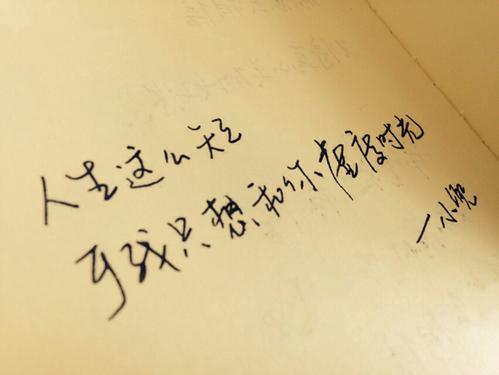 人生这么短
可我只想和你虚度时光
—小